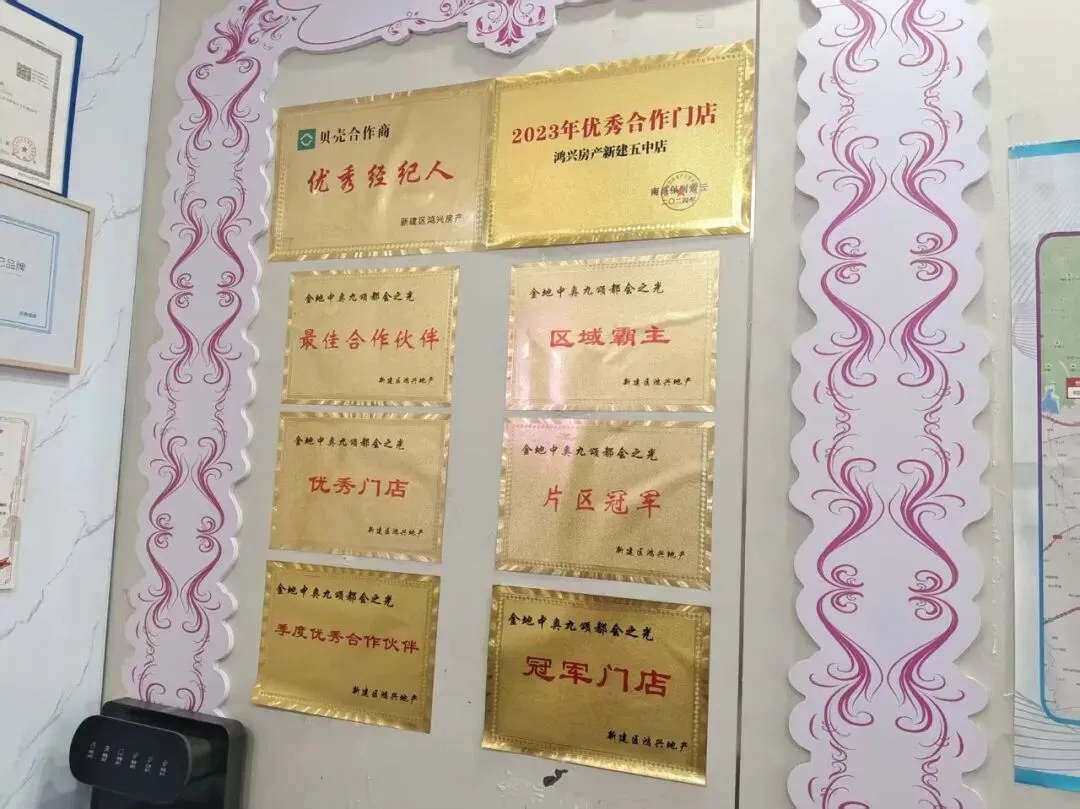 贝壳合作商
优秀经纪人
新建区鸿兴房产
2023年优秀合作门店
鸿兴房产新建五中店
二〇二四年
金地中奥九颂都会之光
最佳合作伙伴
新建区鸿兴地产
金地中奥九颂都会之光
区域霸主
新建区鸿兴地产
金地中奥九颂都会之光
优秀门店
新建区鸿兴地产
金地中奥九颂都会之光
片区冠军
新建区鸿兴地产
金地中奥九颂都会之光
季度优秀合作伙伴
新建区鸿兴地产
金地中奥九颂都会之光
冠军门店
新建区鸿兴地产
品牌